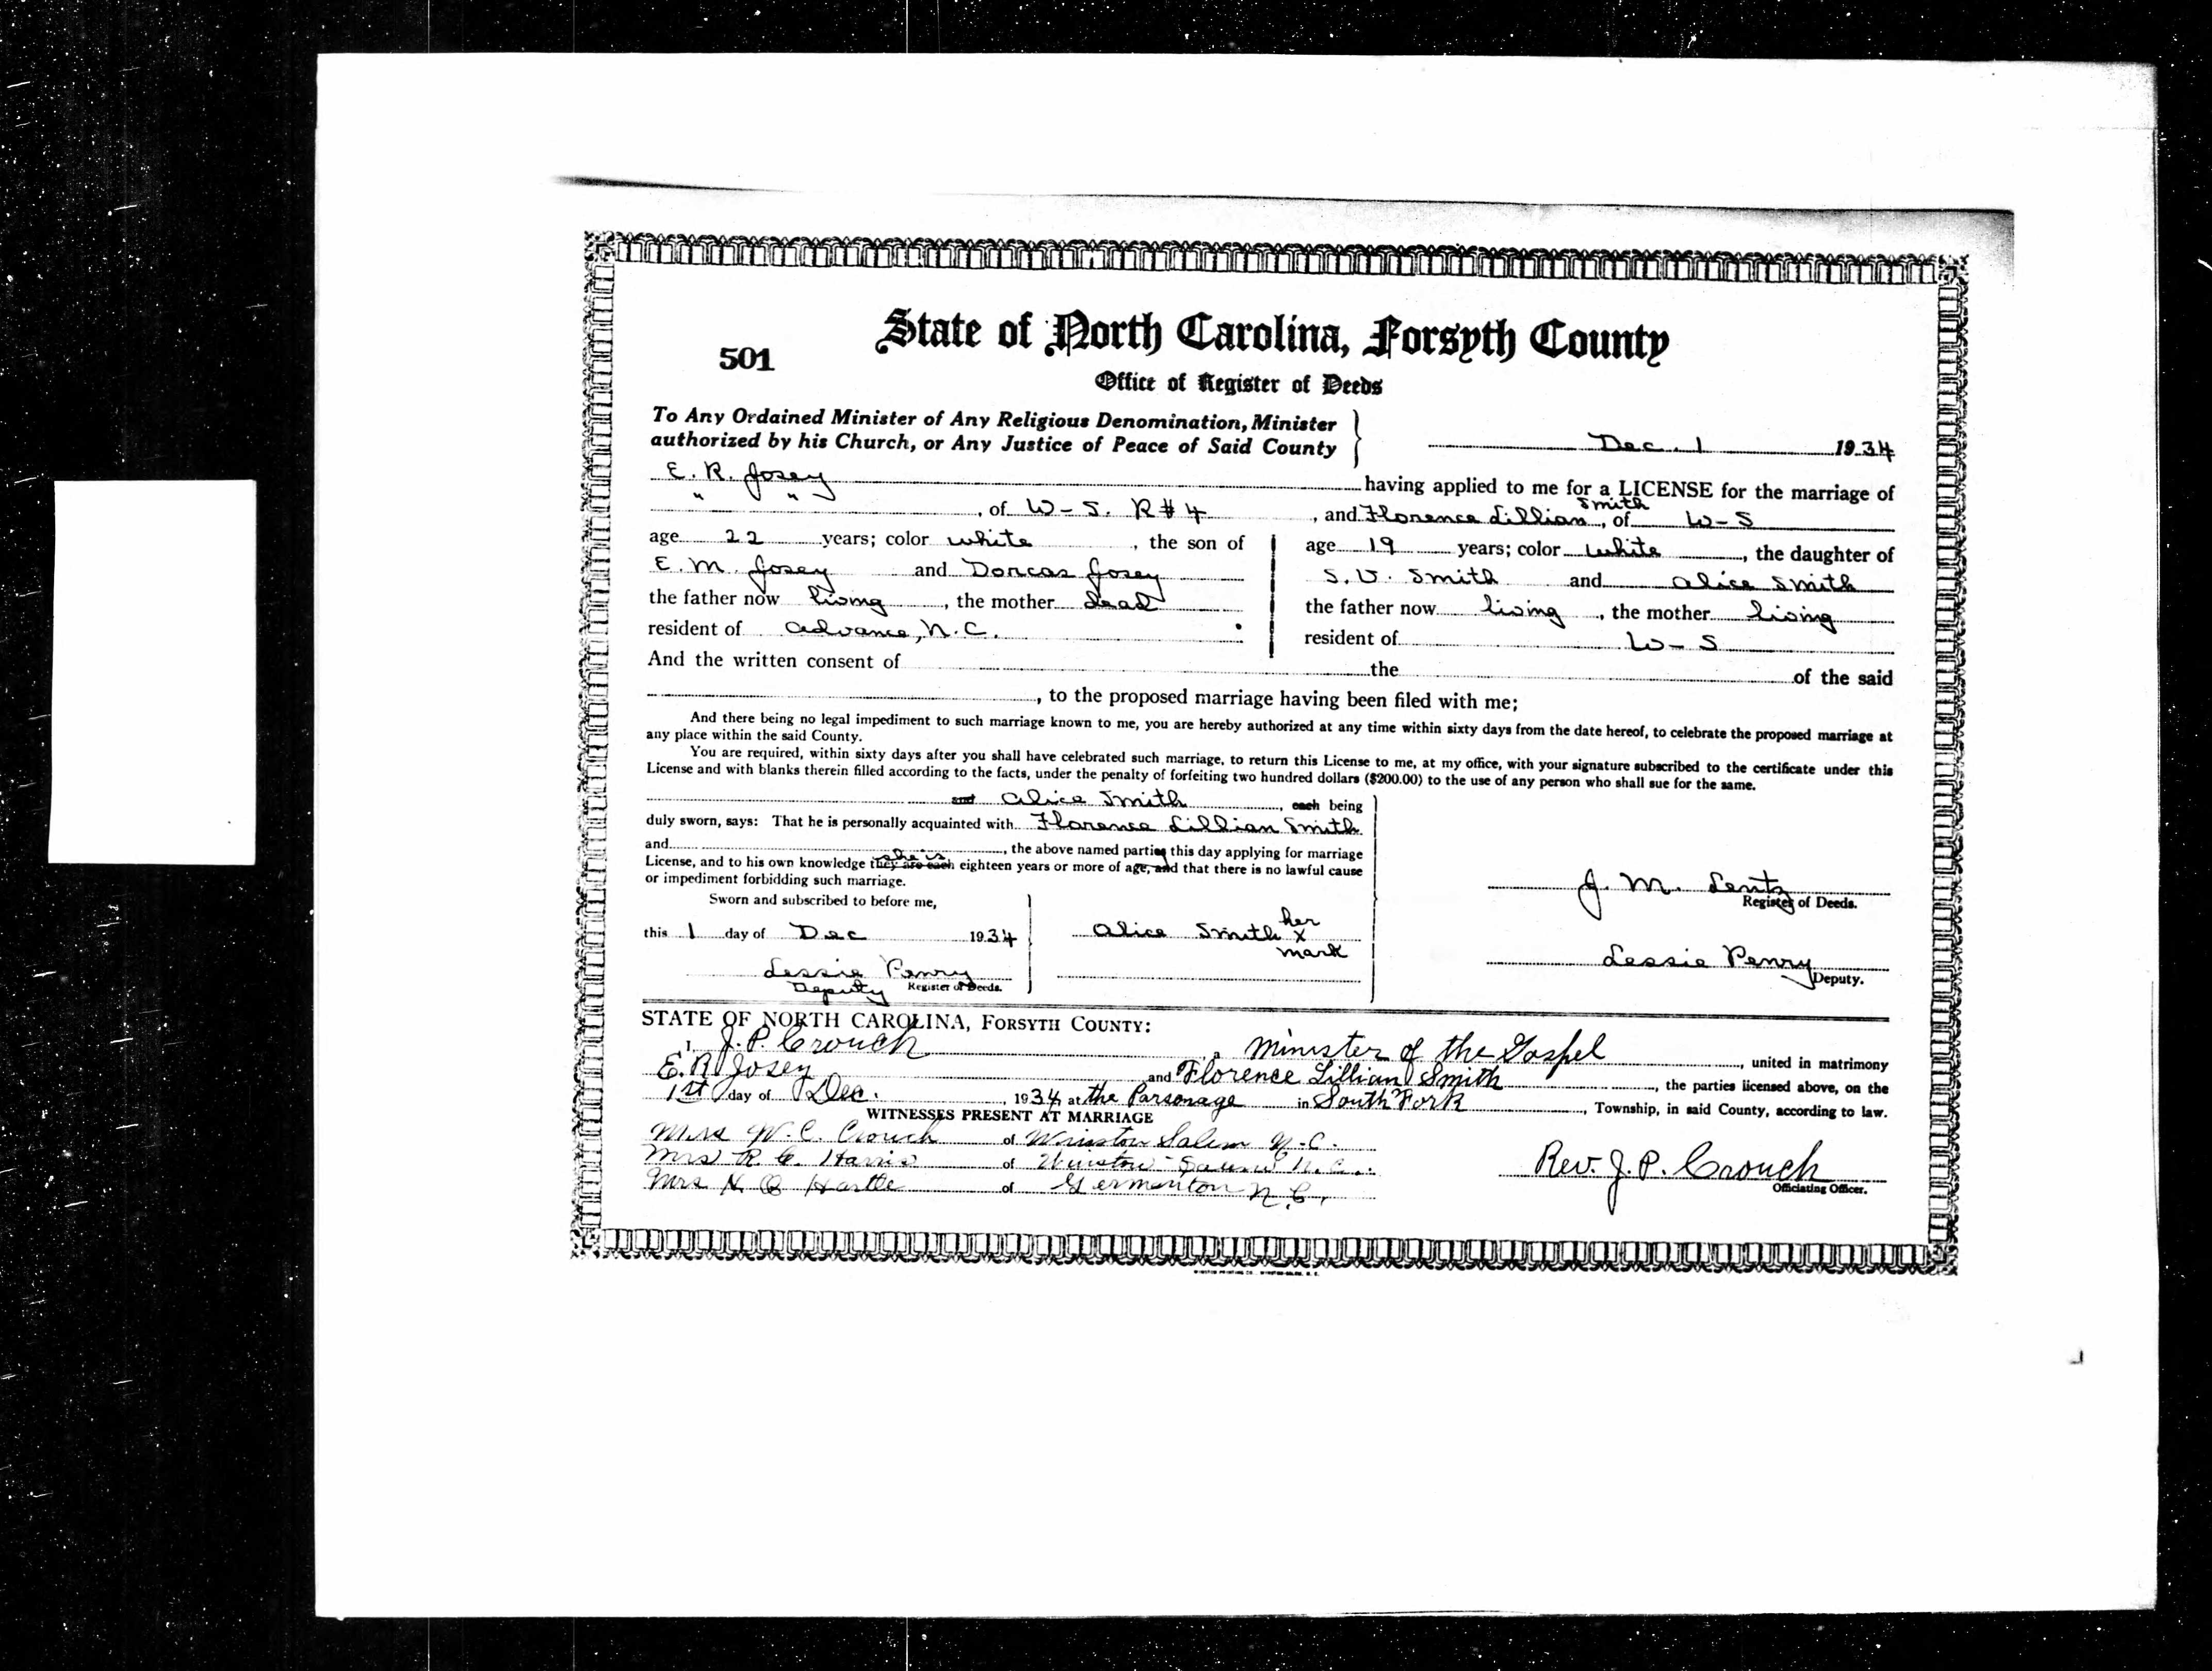 State of North Carolina, Forsyth County
501
Office of Register of Deeds
To Any Ordained Minister of Any Religious Denomination, Minister
authorized by his Church, or Any Justice of Peace of Said County
Dec. 1 1934
E. R. Josey having applied to me for a LICENSE for the marriage of
" " , of W-S. R#4 , and Florence Lillian Smith, of W-S
age 22 years; color white , the son of
E. M. Josey and Dorcas Josey
the father now living , the mother dead
resident of Advance, N.C.
age 19 years; color white , the daughter of
S. V. Smith and Alice Smith
the father now living , the mother living
resident of W-S
And the written consent of the of the said
, to the proposed marriage having been filed with me;
And there being no legal impediment to such marriage known to me, you are hereby authorized at any time within sixty days from the date hereof, to celebrate the proposed marriage at
any place within the said County.
You are required, within sixty days after you shall have celebrated such marriage, to return this License to me, at my office, with your signature subscribed to the certificate under this
License and with blanks therein filled according to the facts, under the penalty of forfeiting two hundred dollars ($200.00) to the use of any person who shall sue for the same.
and Alice Smith , each being
duly sworn, says: That he is personally acquainted with Florence Lillian Smith
and , the above named parties this day applying for marriage
she is
License, and to his own knowledge they are each eighteen years or more of age, and that there is no lawful cause
or impediment forbidding such marriage.
Sworn and subscribed to before me,
this 1 day of Dec 1934
Lessie Penry
Deputy Register of Deeds.
Alice Smith her
x
mark
J. M. Lentz
Register of Deeds.
Lessie Penry
Deputy.
STATE OF NORTH CAROLINA, FORSYTH COUNTY:
I, J. P. Crouch , Minister of the Gospel , united in matrimony
E. R. Josey and Florence Lillian Smith , the parties licensed above, on the
1st day of Dec. , 1934, at the Parsonage in South Fork , Township, in said County, according to law.
WITNESSES PRESENT AT MARRIAGE
Mrs W. C. Crouch of Winston Salem N.C.
Mrs R. C. Harris of Winston-Salem N.C.
Mrs Hartle of Germanton N.C.
Rev. J. P. Crouch
Officiating Officer.